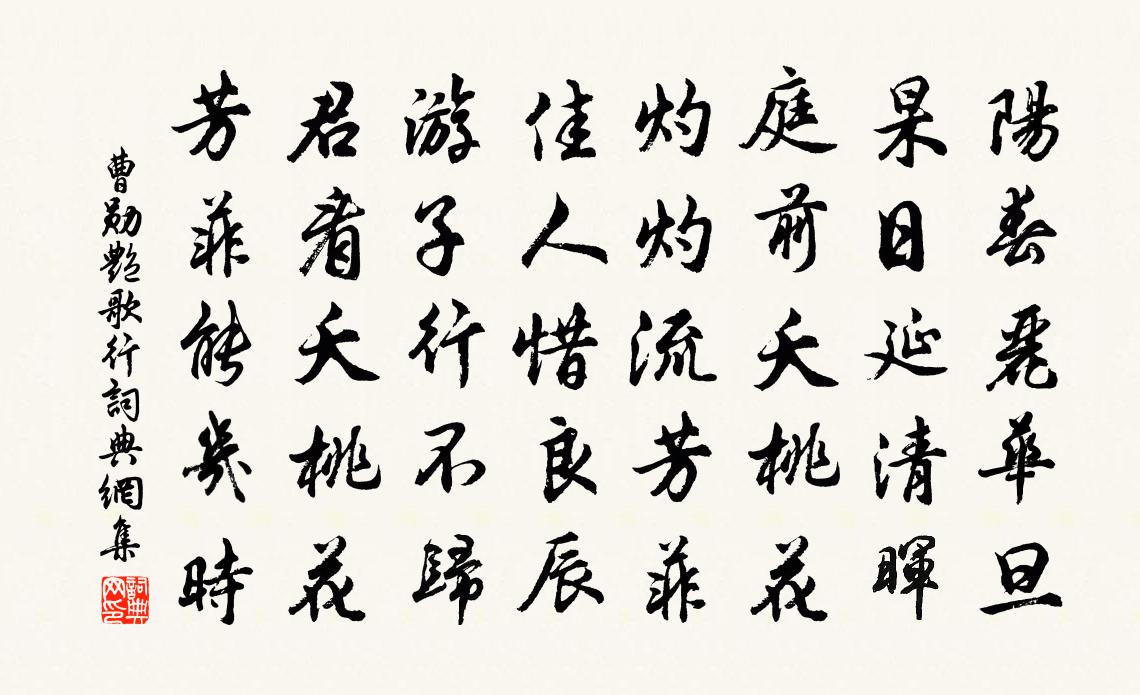 陽春麗華旦
杲日延清暉
庭前夭桃花
灼灼流芳菲
佳人惜良辰
游子行不歸
君看夭桃花
芳菲能幾時
曹勛艷歌行詞典網集
詞典网印